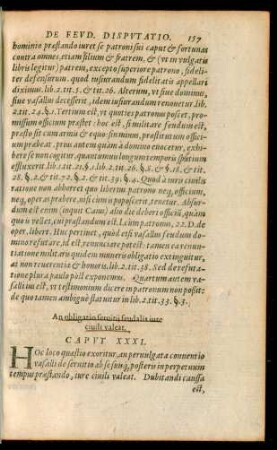 DE FEVD. DISPVTATIO. 157
dominio præstando iuret se patroni sui caput & fortunas
contra omnes, etiam filium & fratrem, & (vt in vulgatis
libris legitur) patrem, excepto superiore patrono, fideli-
ter defensurum. quod iusiurandum fidelitatis appellari
diximus. lib. 2. tit. 5. & tit. 26. Alterum, vt siue dominus,
siue vasallus decesserit, idem iusiurandum renouetur. lib.
2. tit. 24. §. 1. Tertium est, vt quoties patronus poscet, pro-
missum officium præstet: hoc est, si militare feudum est,
præsto sit cum armis & equo: sin minus, prosit at vt offi-
cium præbeat, prout autem quam à domino euocetur, exhi-
bere se non cogitur, quantumuis longum temporis spatium
effluxerit. lib. 2. tit. 24. §. 1. tit. 26. §. 8. & §. 18. & tit.
28. §. 2. & tit. 72. §. 2. & tit. 39. §. 4. Quod à iuris ciuilis
ratione non abhorret: quo libertus patrono neq; officium,
neq; operas præbere, nisi cum is poposcerit, tenetur. Absur-
dum est enim (inquit Caius) alio die deberi officiũ, quàm
quo is vellet, cui præstandum est. L. cùm patronus, 22. D. de
oper. libert. Huc pertinet, quòd etsi vasallus feudum do-
mino refutare, id est, renunciare potest: tamen ea renun-
tiatione militaris quidem muneris obligatio extinguitur,
at non reuerentiæ & honoris. lib. 2. tit. 38. Sed de refuta-
tione plura paulo pòst exponemus. Quartum autem va-
salli ius est, vt testimonium dicere in patronum non possit:
de quo tamen ambiguè statutum in lib. 2. tit. 33. §. 3.
An obligatio seruitij feudalis iure
ciuili valeat.
CAPVT XXXI.
HOc loco quæstio exoritur, an peruulgata conuentio
vasalli de seruitio ab se suisq; posteris in perpetuum
tempus præstando, iure ciuili valeat. Dubitandi caussa
est,